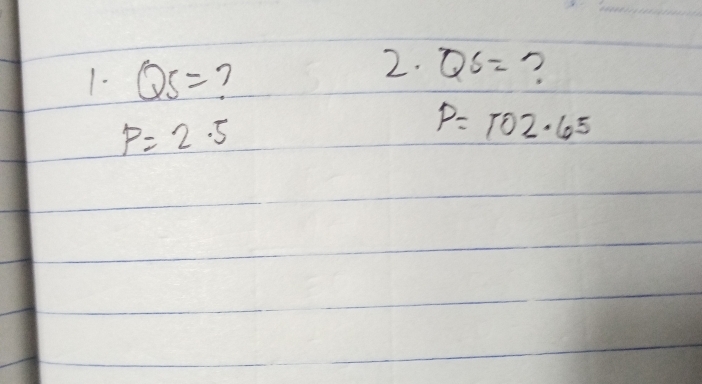 1. Qs=?
P=2.5
2. Qs=?
P=102.65